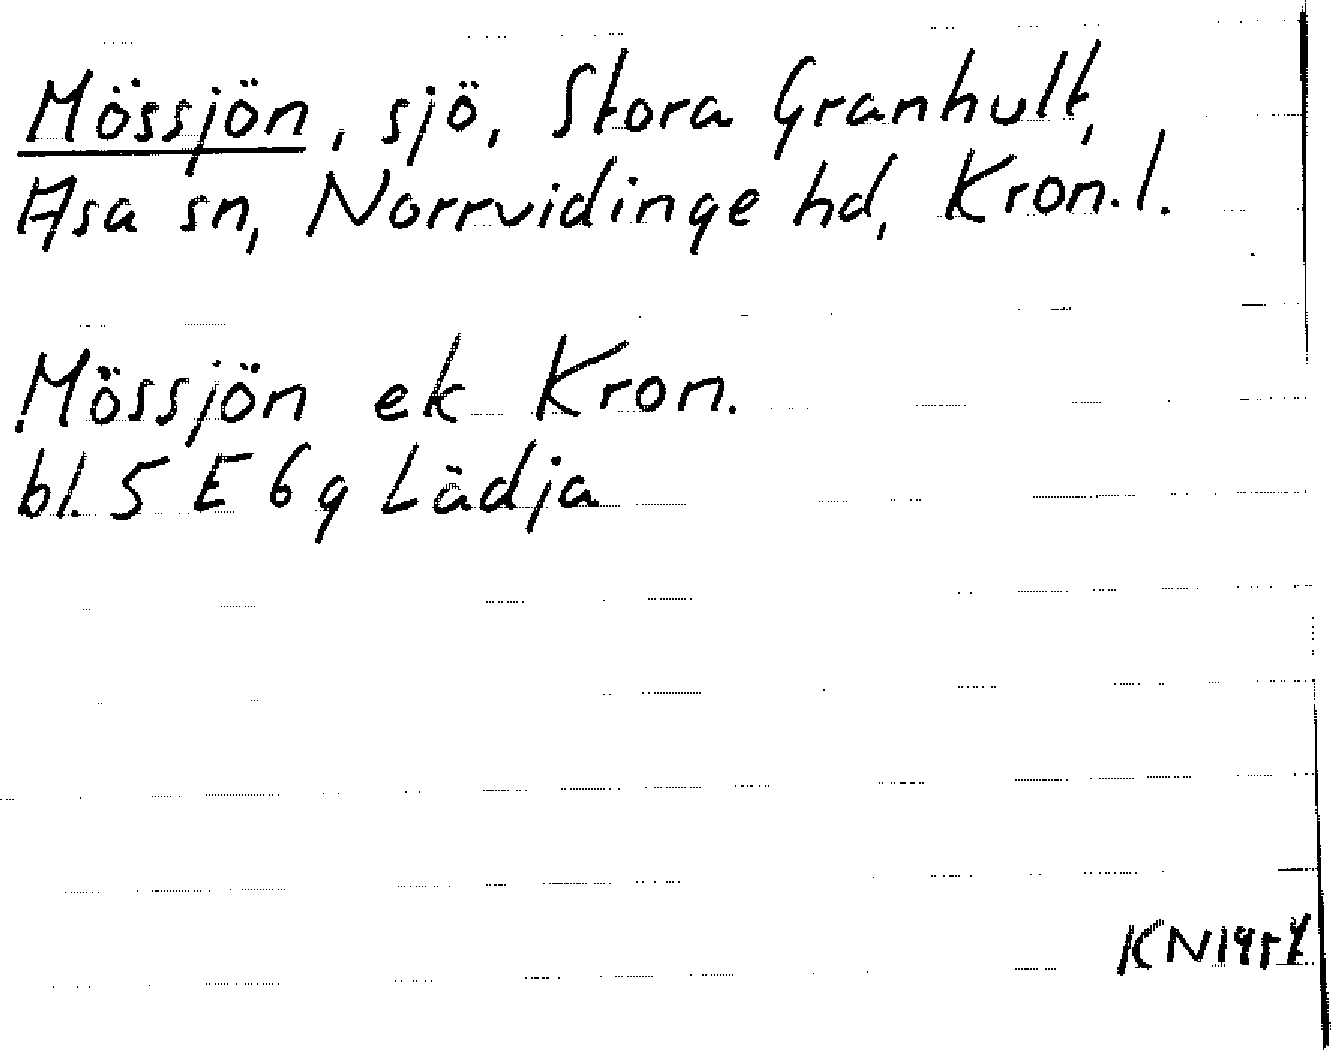 Mössjön, sjö, Stora Granhult,
Asa sn, Norrvidinge hd, Kron.l.
Mössjön ek Kron.
bl. 5 E 6 g Lädja
KN